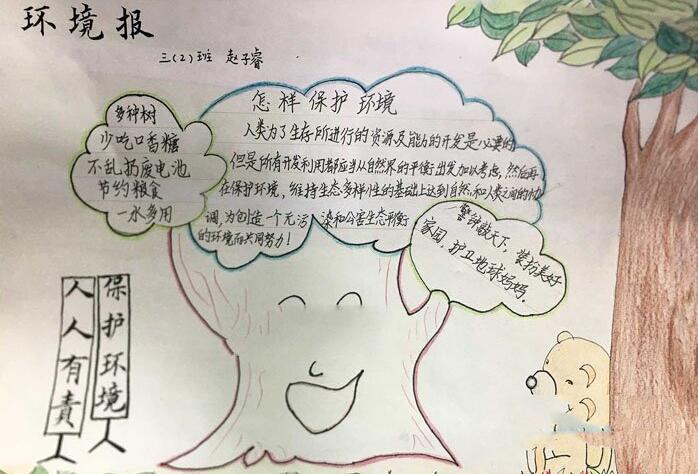 环境报
三(2)班 赵子睿
多种树
少吃口香糖
不乱扔废电池
节约粮食
一水多用
怎样保护环境
人类为了生存所进行的资源及能的开发是必要的
但是所有开发利用都应当从自然界的平衡出发加以考虑,然后再
在保护环境,维持生态多样性的基础上达到自然和人类之间的协
调,为创造一个无污染和公害生态平衡
的环境而共同努力!
警钟敲天下,装扮美好
家园,护卫地球妈妈.
保护环境
人人有責